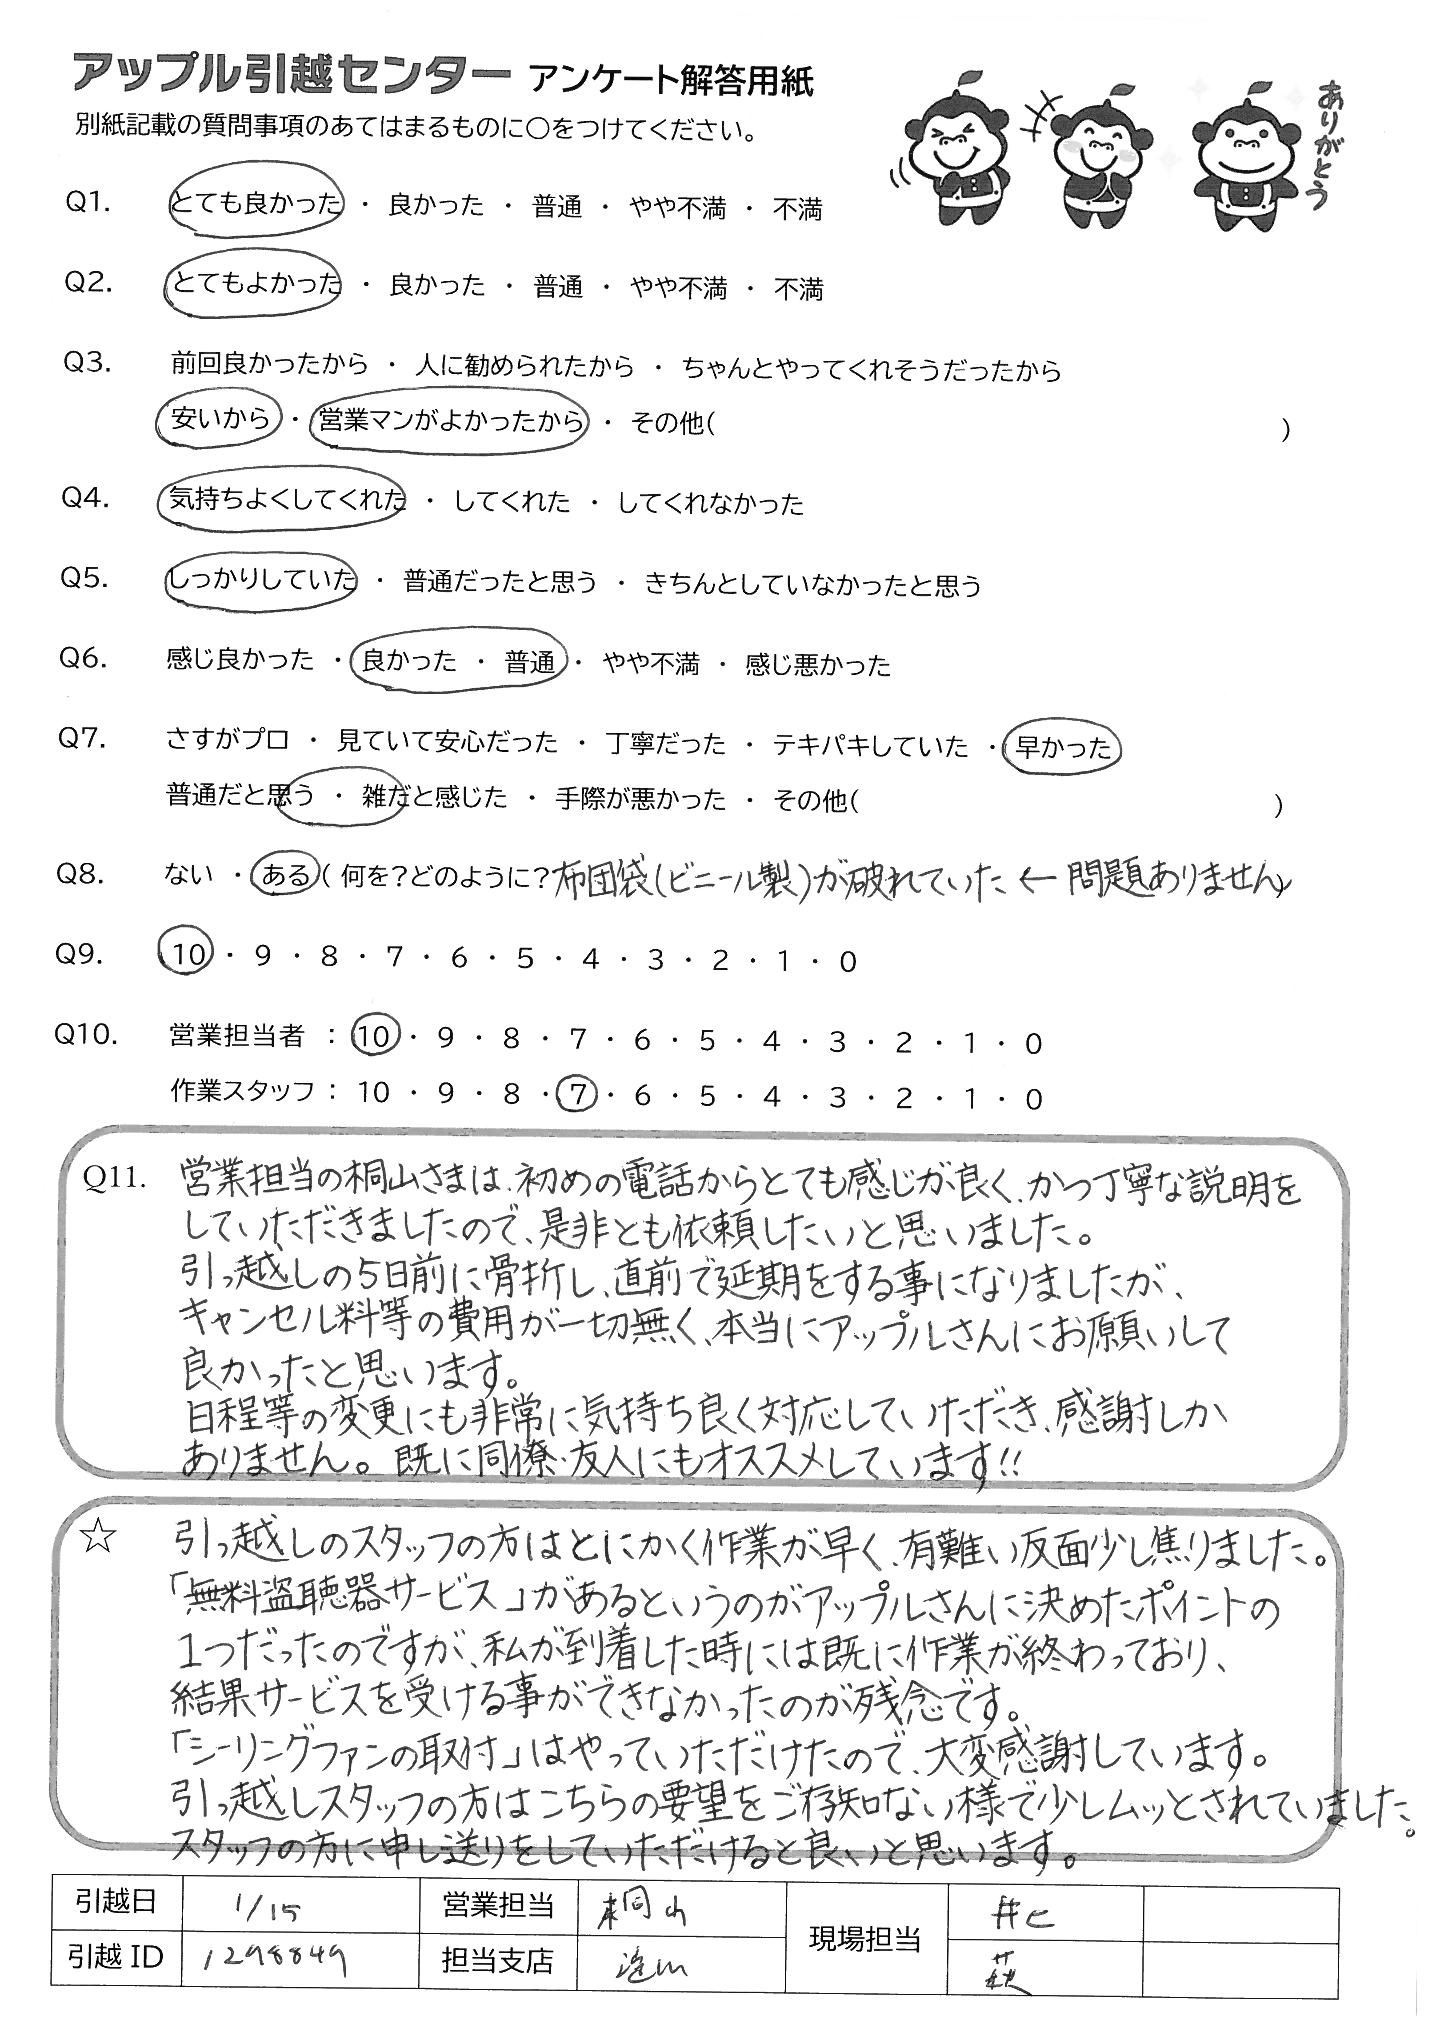 アップル引越センター アンケート解答用紙
別紙記載の質問事項のあてはまるものに○をつけてください。
ありがとう
Q1. とても良かった ・ 良かった ・ 普通 ・ やや不満 ・ 不満
Q2. とてもよかった ・ 良かった ・ 普通 ・ やや不満 ・ 不満
Q3. 前回良かったから ・ 人に勧められたから ・ ちゃんとやってくれそうだったから
安いから ・ 営業マンがよかったから ・ その他( )
Q4. 気持ちよくしてくれた ・ してくれた ・ してくれなかった
Q5. しっかりしていた ・ 普通だったと思う ・ きちんとしていなかったと思う
Q6. 感じ良かった ・ 良かった ・ 普通 ・ やや不満 ・ 感じ悪かった
Q7. さすがプロ ・ 見ていて安心だった ・ 丁寧だった ・ テキパキしていた ・ 早かった
普通だと思う ・ 雑だと感じた ・ 手際が悪かった ・ その他( )
Q8. ない ・ ある( 何を?どのように? 布団袋(ビニール製)が破れていた ← 問題ありません)
Q9. 10 ・ 9 ・ 8 ・ 7 ・ 6 ・ 5 ・ 4 ・ 3 ・ 2 ・ 1 ・ 0
Q10. 営業担当者 : 10 ・ 9 ・ 8 ・ 7 ・ 6 ・ 5 ・ 4 ・ 3 ・ 2 ・ 1 ・ 0
作業スタッフ : 10 ・ 9 ・ 8 ・ 7 ・ 6 ・ 5 ・ 4 ・ 3 ・ 2 ・ 1 ・ 0
Q11. 営業担当の桐山さまは、初めの電話からとても感じが良く、かつ丁寧な説明を
していただきましたので、是非とも依頼したいと思いました。
引っ越しの5日前に骨折し、直前で延期をする事になりましたが、
キャンセル料等の費用が一切無く、本当にアップルさんにお願いして
良かったと思います。
日程等の変更にも非常に気持ち良く対応していただき、感謝しか
ありません。既に同僚・友人にもオススメしています!!
☆ 引っ越しのスタッフの方はとにかく作業が早く、有難い反面少し焦りました。
「無料盗聴器サービス」があるというのがアップルさんに決めたポイントの
1つだったのですが、私が到着した時には既に作業が終わっており、
結果サービスを受ける事ができなかったのが残念です。
「シーリングファンの取付」はやっていただけたので、大変感謝しています。
引っ越しスタッフの方はこちらの要望をご存知ない様で少しムッとされていました。
スタッフの方に申し送りをしていただけると良いと思います。
引越日 1/15 営業担当 桐山 現場担当
引越 ID 1298849 担当支店 萩